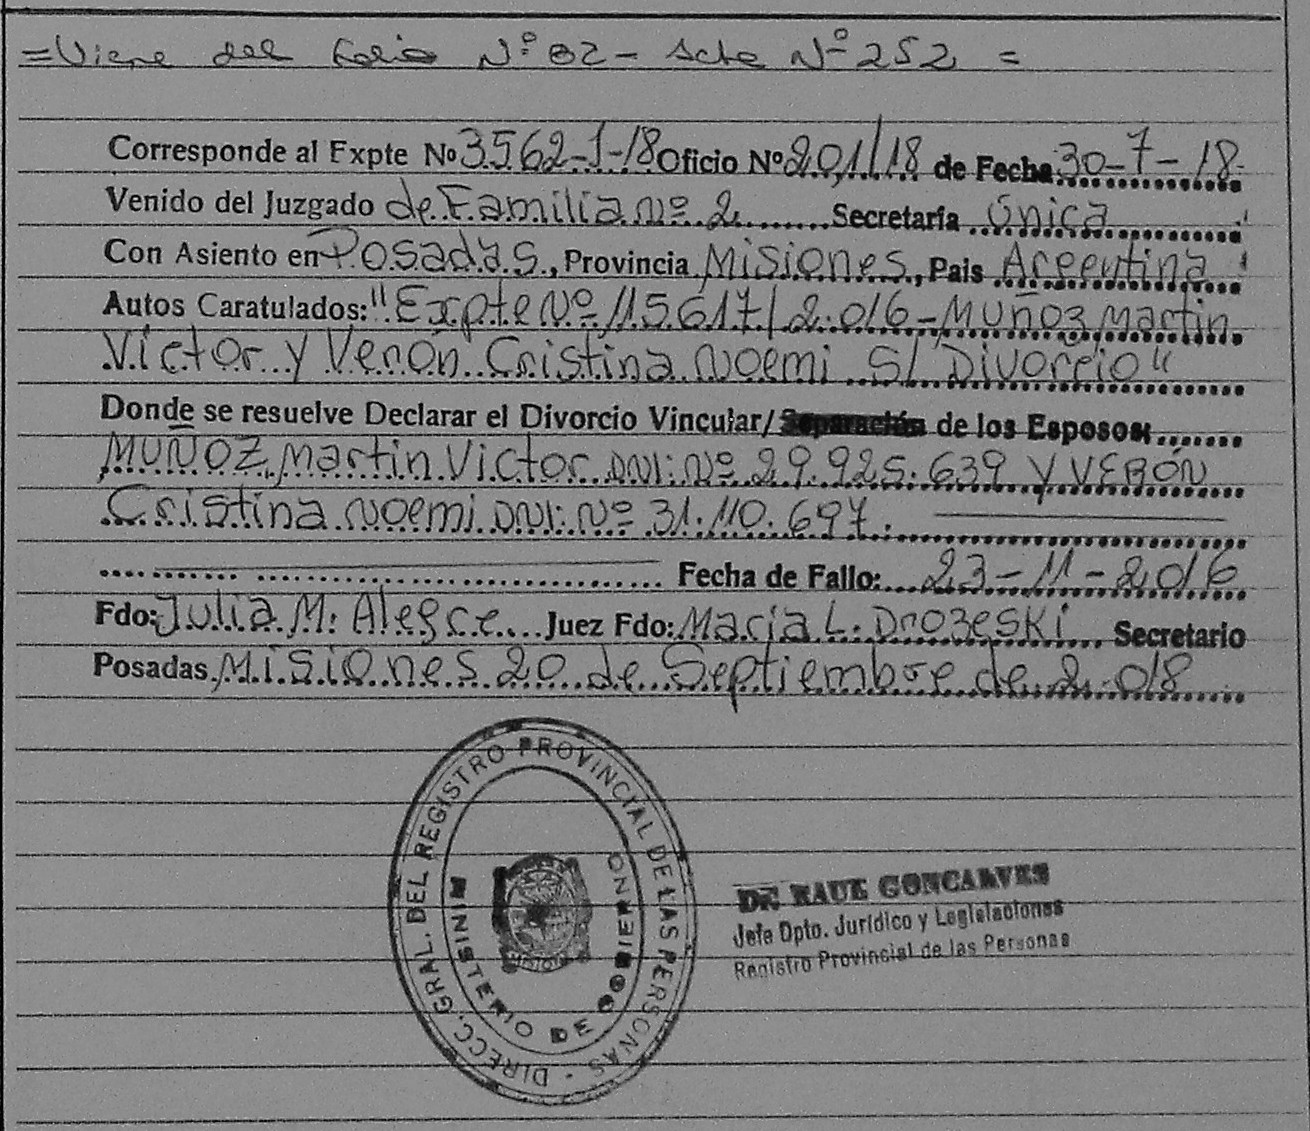 =Viene del Folio Nº 82 - Acta Nº 252 =
Corresponde al Expte Nº 3562-1-18 Oficio Nº 201/18 de Fecha 30-7-18
Venido del Juzgado de Familia Nº 2 Secretaría Única
Con Asiento en Posadas, Provincia Misiones, Pais Argentina
Autos Caratulados: "Expte Nº 115617/2016-Muñoz Martin
Víctor y Verón Cristina Noemi S/ Divorcio"
Donde se resuelve Declarar el Divorcio Vincular/Separación de los Esposos:
MUÑOZ, Martin Victor DNI: Nº 29.925.639 y VERÓN
Cristina Noemi DNI: Nº 31.110.697.
Fecha de Fallo: 23-11-2016
Fdo: Julia M. Alegre Juez Fdo: Maria L. Drozeski Secretario
Posadas, Misiones 20 de Septiembre de 2018
DIRECC. GRAL. DEL REGISTRO PROVINCIAL DE LAS PERSONAS -
MINISTERIO DE GOBIERNO
RAUL GONCALVES
Jefe Dpto. Jurídico y Legislaciones
Registro Provincial de las Personas